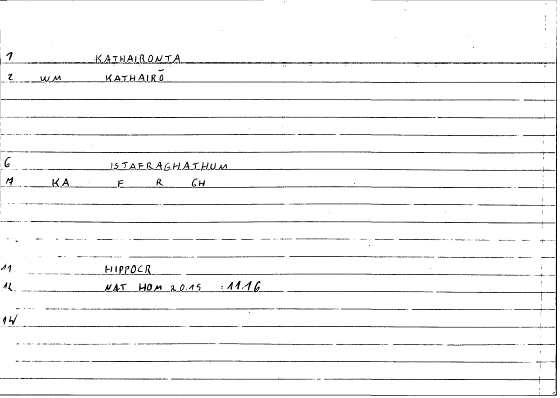 1 KATHAIRONTA
2 WM KATHAIRŌ
6 ISTAFRAGHATHUM
KA F R GH
11 HIPPOCR
12 NAT HOM 20.15 : 11.16
14/